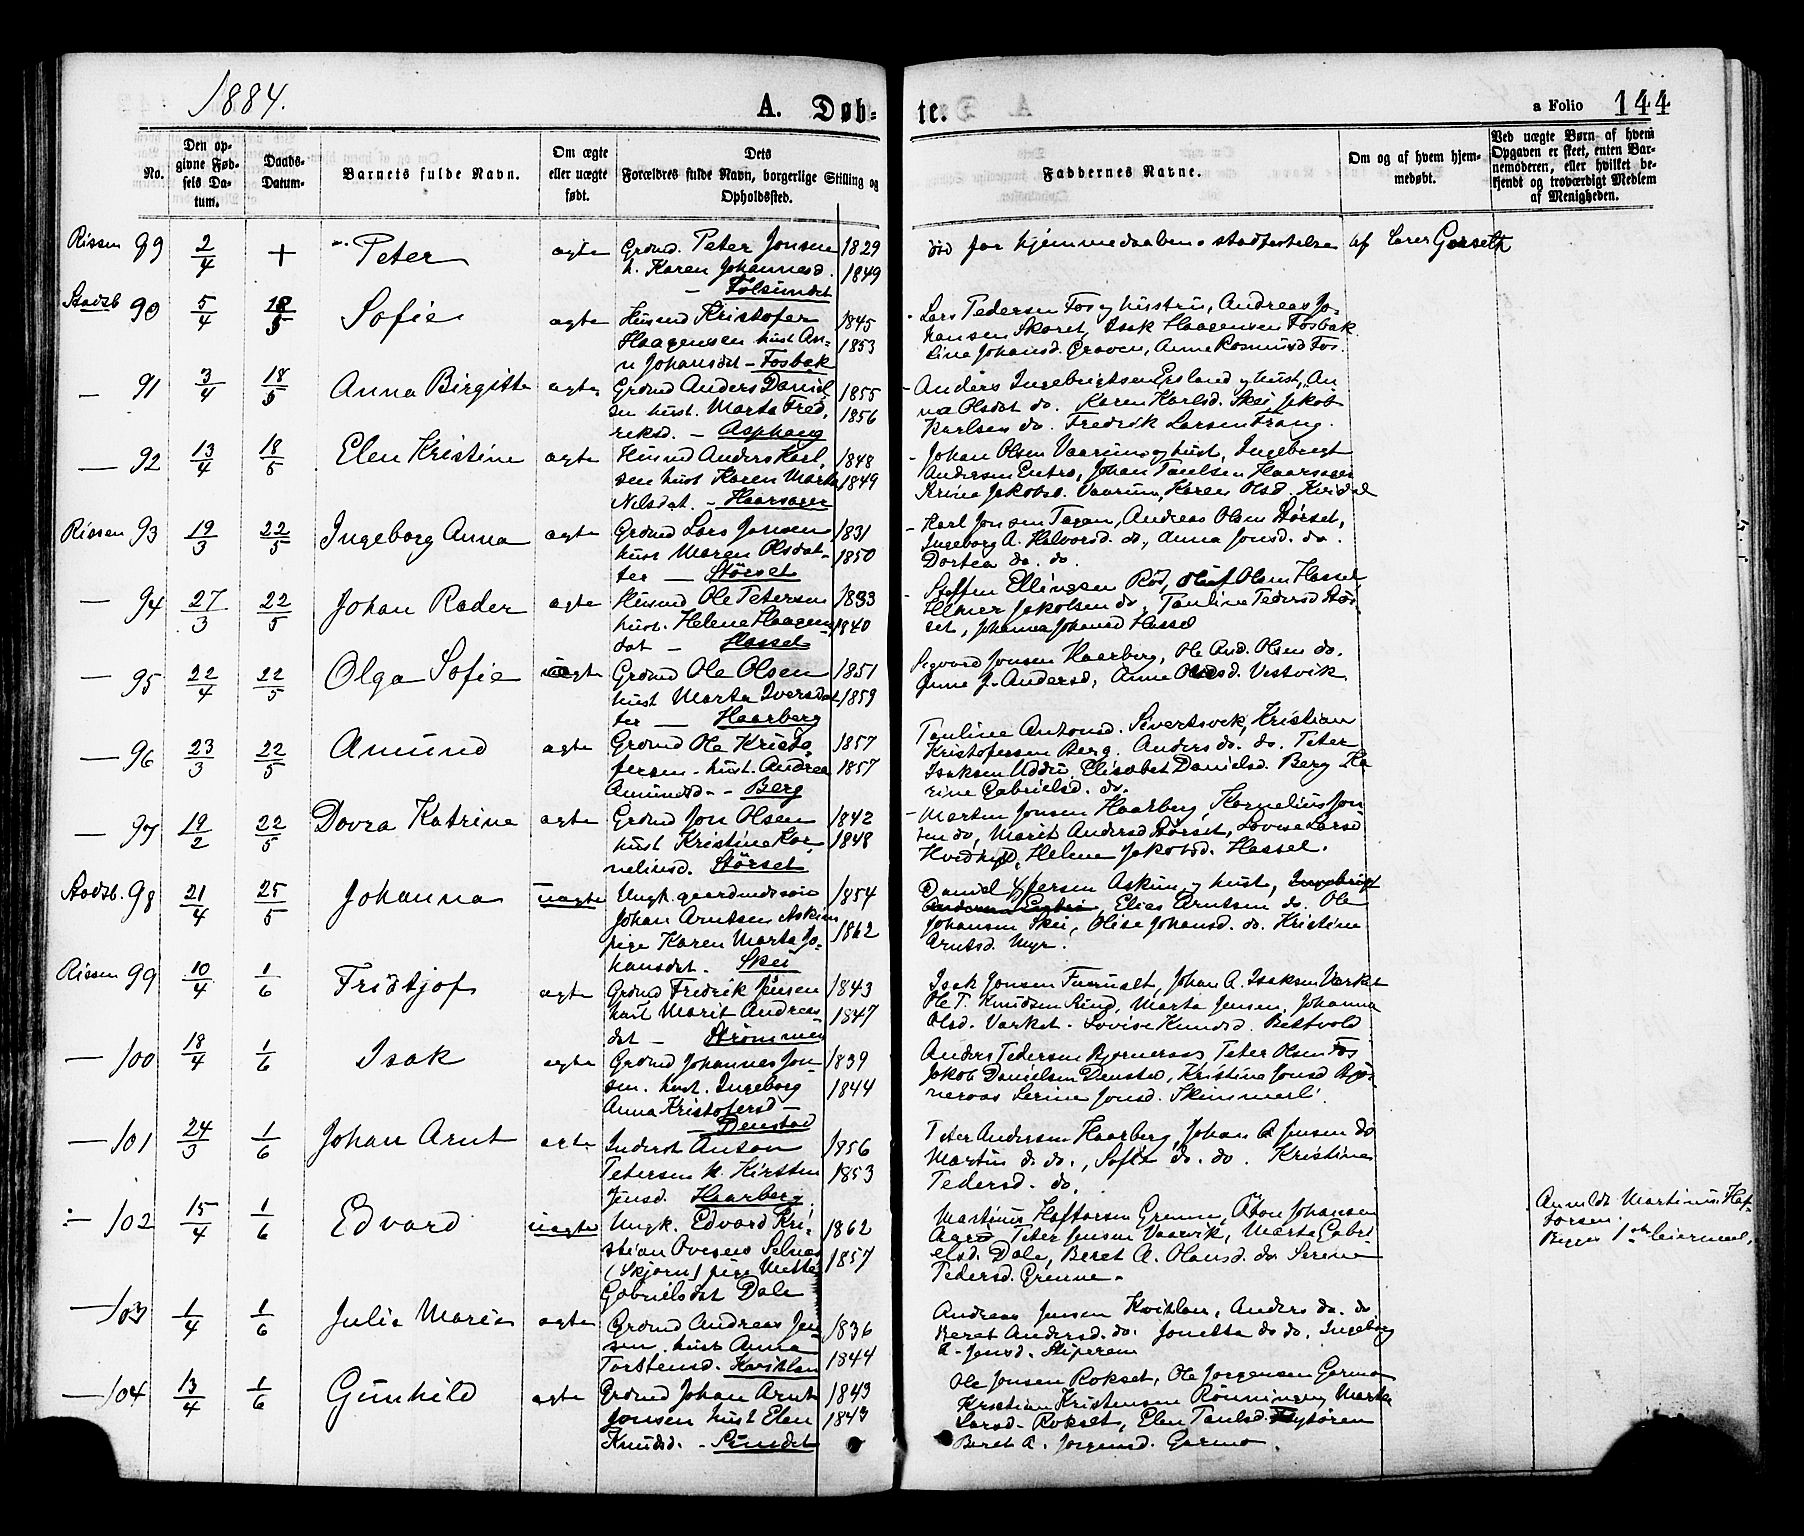 1884.
A. Døb-
te.
a Folio 144
No.
Den op-
givne Fød-
sels Da-
tum.
Daabs-
Datum.
Barnets fulde Navn.
Om ægte
eller uægte
født.
Dets
Forældres fulde Navn, borgerlige Stilling og
Opholdssted.
Faddernes Navne.
Om og af hvem hjem-
medøbt.
Ved uægte Børn af hvem
Opgaven er skeet, enten Bar-
nemoderen, eller hvilket be-
kjendt og troværdigt Medlem
af Menigheden.
Rissen 99 2/4 + Peter ægte Grdmd. Peter Jonsen 1829
h. Karen Johannesd. 1849
død før hjemmedaabens stadfæstelse af Lærer Gorseth
Stadsb. 90 5/4 18/5 Sofie ægte Husmd Kristofer 1845
Haagensen hust An- 1853
n Johansdat - Fosbak
Lars Pedersen Fos og hustru, Andreas Jo-
hansen Skaret, Isak Haagensen Fosbak
Lina Johansd. Graven, Anne Rasmusd Fos.
— 91 3/4 18/5 Anna Birgitte ægte Grdmd Anders Daniel 1855
sen hust. Marta Fred, 1856
riksd. - Asphaug
Anders Ingebrigtsen Ersland og hust, An
na Olsdat do. Karen Karlsd. Skei, Jakob
Karlsen do. Fredrik Larsen Frang.
— 92 13/4 18/5 Elen Kristine ægte Husmd Anders Karl, 1848
sen hust Karen Marta 1849
Nilsdat. - Haarsager
Johan Olsen Vaarum og hust, Ingebrigt
Andersen Entro, Johan Paulsen Haarsager
Vaarum, Karen Olsd. Kvidal
Rissen 93 19/3 22/5 Ingeborg Anna ægte Grdmd Lars Jonsen 1831
hust Maren Olsdat- 1850
ter — Størset
Karl Jonsen Andreas Olsen Størset,
Ingeborg A. Halvorsd. do, Anna Jonsd. do.
Dortea do. do.
— 94 27/3 22/5 Johan Rader ægte Husmd Ole Petersen 1833
hust. Helene Haagens 1840
dat - Hassel
Steffen Ellingsen Rød, Oluf Olsen Hassel
Elmer Jakobsen do, Pauline Pedersd Stør-
set, Johanna Johansd Hassel
— 95 22/4 22/5 Olga Sofie ægte Grdmd Ole Olsen 1851
hust Marta Iversdat 1859
ter — Haarberg
Sigvard Jonsen Haarberg, Ole And. Olsen do.
Andersd, Anne Olsd. Vestvik
— 96 23/3 22/5 Amund ægte Grdmd Ole Kristo, 1857
fersen - hust. Andrea 1857
Amundsd - - Berg
Pauline Antonsd. Sivertsvik, Kristian
Kristofersen Berg. Anders do. do. Peter
Isaksen Uddu, Elisabet Danielsd. Berg Ka
rine Gabrielsd. do.
— 97 19/2 22/5 Dovra Katrine ægte Grdmd Jon Olsen 1842
hust Kristine Kor 1848
neliusd. Størset
Morten Jonsen Haarberg, Kornelius Jon
sen do, Marit Andersd Størset, Lovise Larsd
Helene Jakobsd. Hassel.
Stadsb. 98 21/4 25/5 Johanna uægte Ungk. gaardmdssøn 1854
Johan Arntsen Askim
pige Karen Marta Jo- 1862
hansdat. Skei
Daniel Askim og hust, Ingebrigt
Andersen Entro, Elias Arntsen do. Ole
Johansen Skei, Olise Johansd. do. Kristine
Arntsd. Myr.
Rissen 99 10/4 1/6 Fridtjof ægte Grdmd Fredrik Jensen 1843
hust Marit Andreas- 1847
dat - Strømmen
Isak Jonsen Johan A. Isaksen Varket
Ole T. Knudsen Rind, Marta Jensen, Johanna
Olsd. Varket. Lovise Knudsd. Bettvold
— 100 18/4 1/6 Isak ægte Grdmd Johannes Jon- 1839
sen. hust. Ingeborg 1844
Anna Kristofersd -
- Denstad
Anders Pedersen Bjørneraas, Peter Olsen Fos
Jakob Danielsen Denstad, Kristine Jonsd Bjør-
neraas Serine Jonsd.
— 101 24/3 1/6 Johan Arnt ægte Inderst Anton 1856
Petersen h. Kirsten 1853
Jensd. Haarberg
Peter Andersen Haarberg, Johan A Jensen do
Martin do do., Sofie do. do. Kristine
Pedersd. do.
— 102 15/4 1/6 Edvard uægte Ungk. Edvard Kri 1862
stian Ovesen Selnes 1857
(Skjørn) pige Mette
Gabrielsdat Dale
Martinus Haftorsen Grenne, Johansen
Peter Jensen Vaarvik, Marta Gabri
elsd. Dale, Beret A. Olansd. do Serine
Pedersd. Grenne.
Anmldt Martinus Haf-
torsen
— 103 1/4 1/6 Julie Marie ægte Grdmd Andreas Jen 1836
sen. hust Anna 1844
Torstensd. Kvithlen
Andreas Jensen Kvithlen, Anders do. do.
Beret Andersd. do. Jonetta do do, Ingeborg
A. Jensd.
— 104 13/4 1/6 Gunhild ægte Grdmd Johan Arnt 1843
Jonsen hust Elen 1843
Knudsd. - Sundet
Ole Jonsen Rokset, Ole Jørgensen Garmo
Kristian Kristensen Rønningen, Marta
Larsd - Rokset, Elen Paulsd.
Beret A. Jørgensd. Garmo.